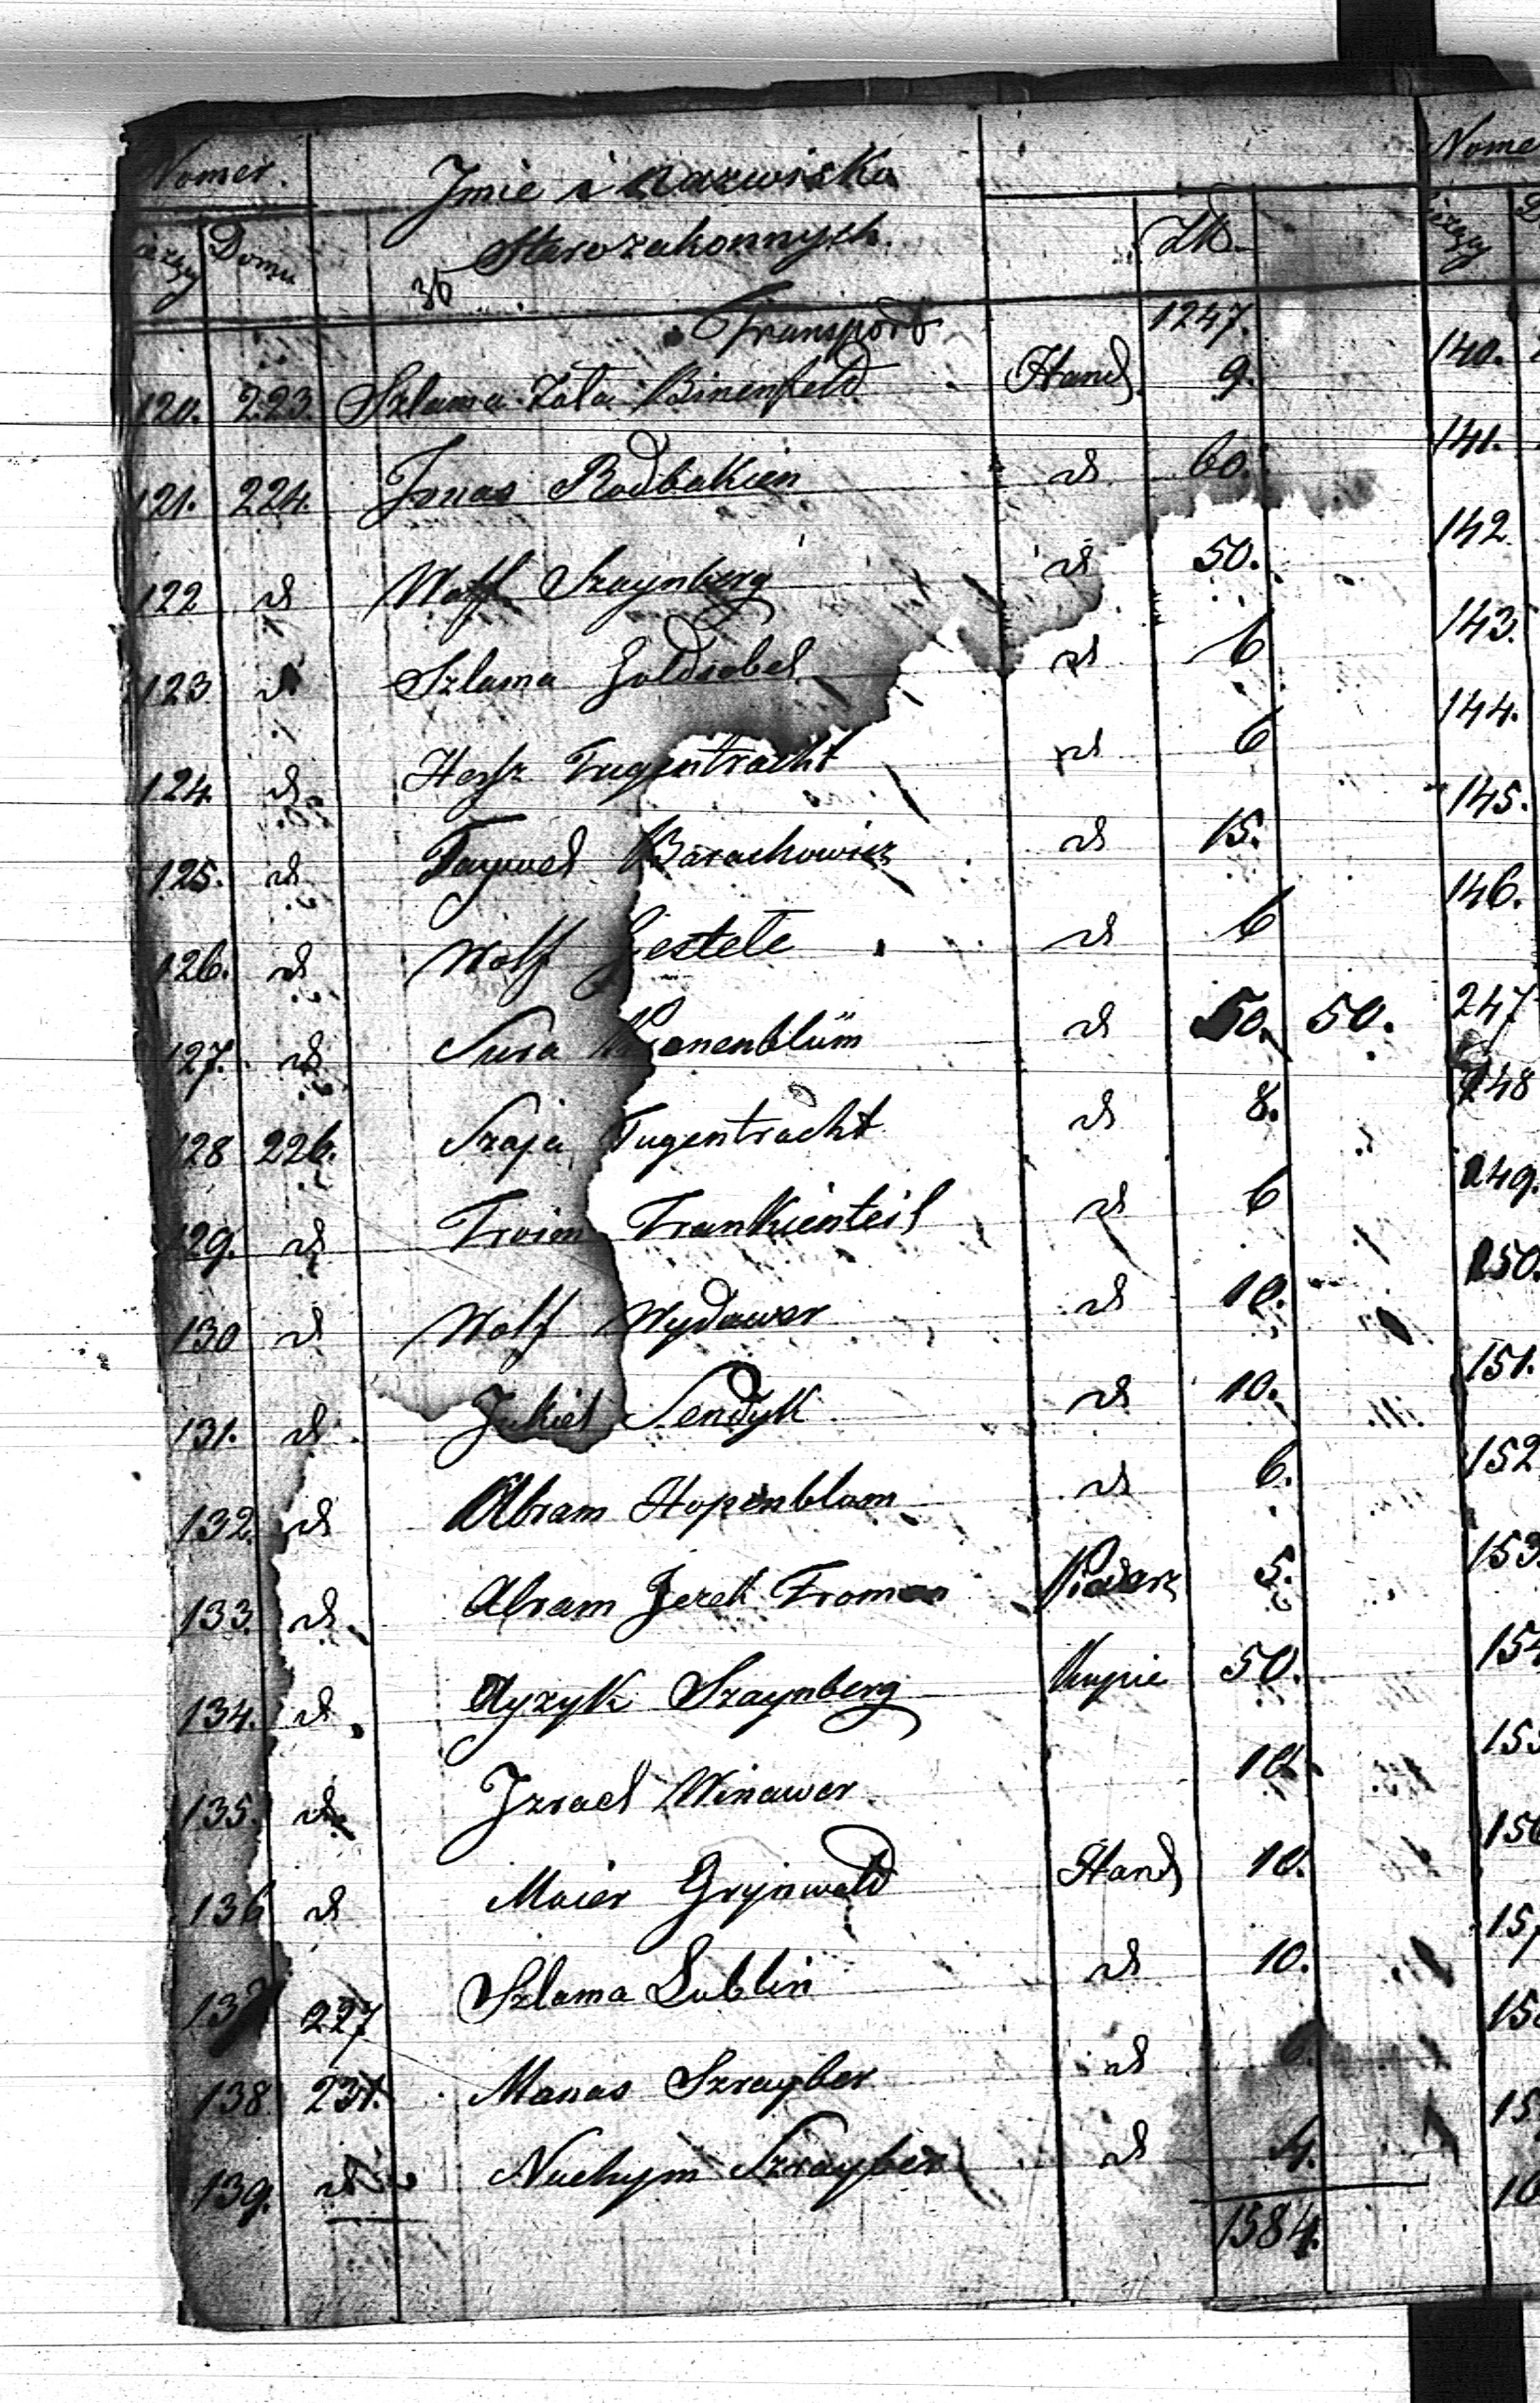 Nomer. Imie i Nazwiska
bieżący Domu Starozakonnych. Złł
36
Transport 1247.
120. 223. Szlama Zala Binenfeld Hand 9.
121. 224. Jonas Rodbakien d 60.
122 d Wolf Szaynberg d 50.
123 d Szlama Goldsobel d 6
124. d Hersz Tugentracht d 6
125. d Faywel Barachowicz d 15.
126. d Wolf Gestele d 6
127. d Sura Kronenblüm d 50. 50.
128 226. Szaja Tugentracht d 8.
129. d Froim Frankienteil d 6
130 d Wolf Wydawer d 10.
131. d Jekiel Sendyk d 10.
132. d Abram Hopenblum d 6.
133. d Abram Jezek Froman 5.
134. d Ayzyk Szaynberg Kupie 50.
135. d Izrael Winawer 10.
136 d Maier Grynwald Hand 10.
137 227 Szlama Lublin d 10.
138 231. Manas Szrayber d 6.
139. d Nuchym Szrayber d 4.
1584.
Nome
bieżący
140.
141.
142
143.
144.
145.
146.
247
248
249.
250.
151.
152
153.
154
155
156
157